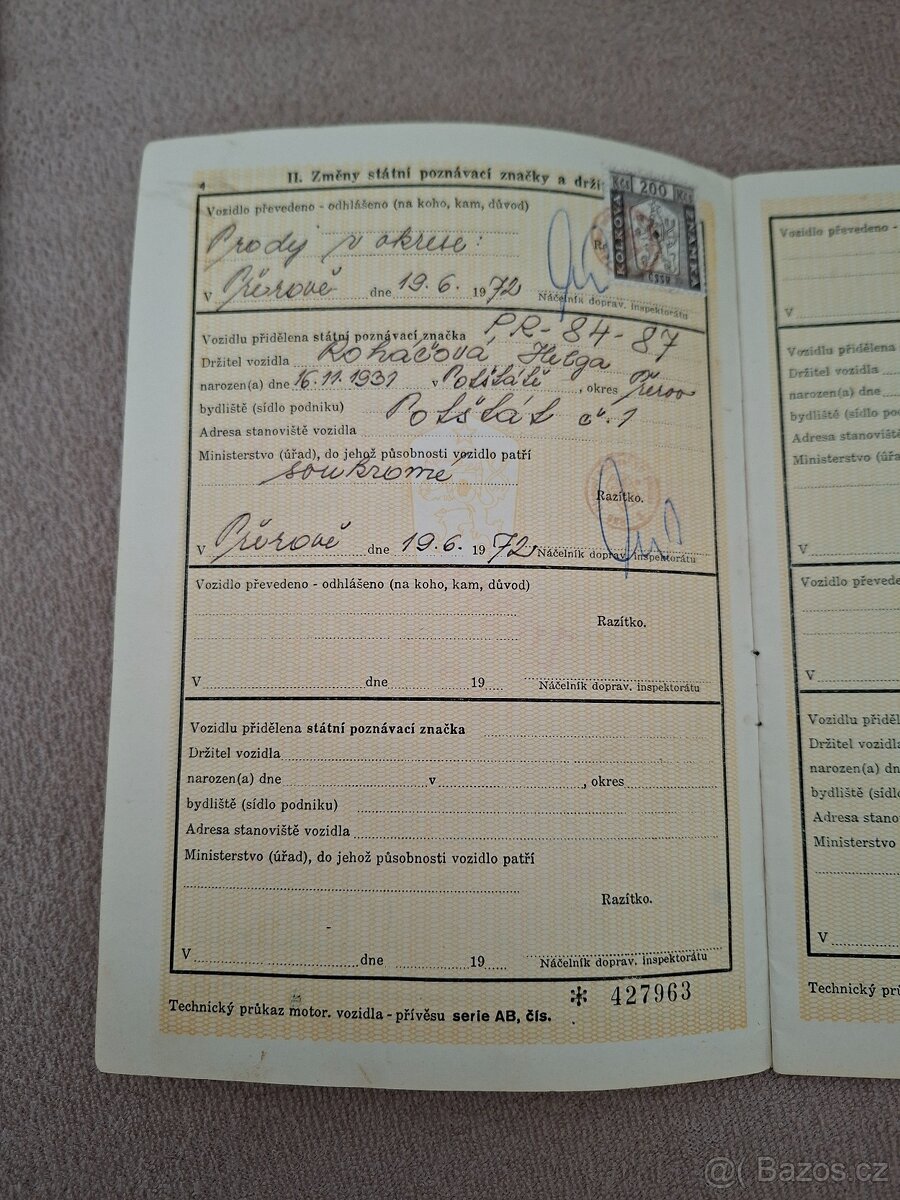 4 II. Změny státní poznávací značky a drži
Vozidlo převedeno - odhlášeno (na koho, kam, důvod)
Prodej v okrese:
V Přerově dne 19.6. 1972
Náčelník doprav. inspektorátu
Kčs 200 Kčs
KOLKOVÁ
ZNÁMKA
ČSSR
Vozidlu přidělena státní poznávací značka PR-84-87
Držitel vozidla Roháčová Helga
narozen(a) dne 16.11.1931 v Potštátě, okres Přerov
bydliště (sídlo podniku) Potštát č.1
Adresa stanoviště vozidla
Ministerstvo (úřad), do jehož působnosti vozidlo patří
soukromé
Razítko.
V Přerově dne 19.6. 1972 Náčelník doprav. inspektorátu
Vozidlo převedeno - odhlášeno (na koho, kam, důvod)
Razítko.
V dne 19
Náčelník doprav. inspektorátu
Vozidlu přidělena státní poznávací značka
Držitel vozidla
narozen(a) dne v , okres
bydliště (sídlo podniku)
Adresa stanoviště vozidla
Ministerstvo (úřad), do jehož působnosti vozidlo patří
Razítko.
V dne 19
Náčelník doprav. inspektorátu
Technický průkaz motor. vozidla - přívěsu serie AB, čís. * 427963
Vozidlo převedeno -
V
Vozidlu přiděl
Držitel vozidla
narozen(a) dne
bydliště (sídlo po
Adresa stanov
Ministerstvo (úřa
V
Vozidlo převede
V
Vozidlu přiděl
Držitel vozidla
narozen(a) dn
bydliště (sídl
Adresa stano
Ministerstvo
V
Technický prů
@( Bazos.cz